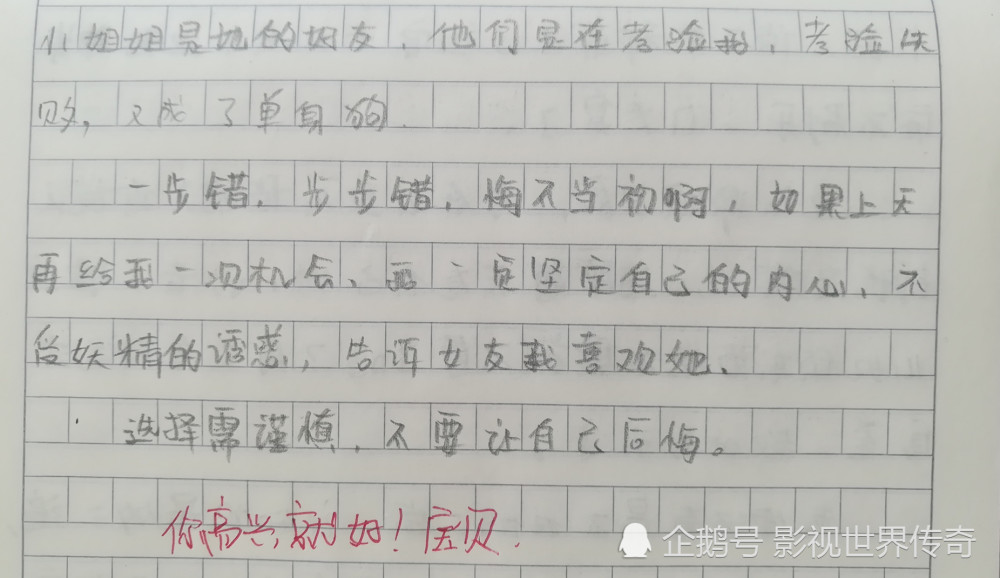 小姐姐是她的好友，他们是在考验我，考验失
败，又成了单身狗.
一步错，步步错，悔不当初啊，如果上天
再给我一次机会、我一定坚定自己的内心、不
受妖精的诱惑，告诉女友我喜欢她、
选择需谨慎，不要让自己后悔。
你高兴就好！宝贝.
企鹅号 影视世界传奇